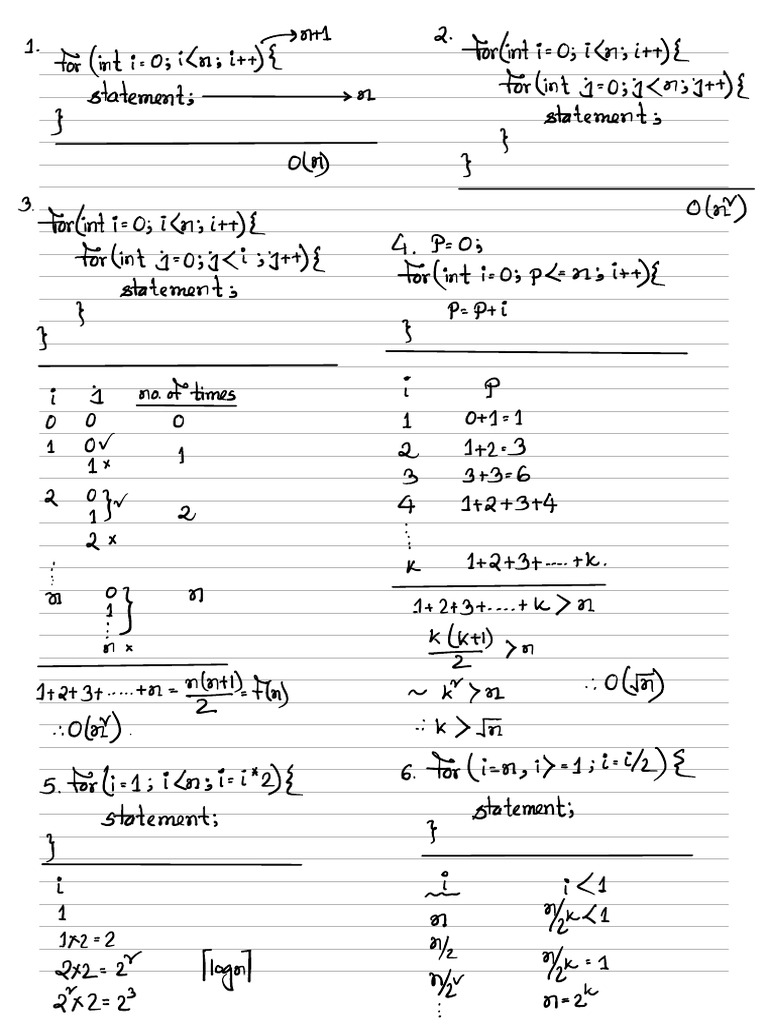 1.
for (int i=0; i<n; i++){ → n+1
statement; → n
}
O(n)
2.
for(int i=0; i<n; i++){
for(int j=0; j<n; j++){
statement;
}
}
O(n²)
3.
for(int i=0; i<n; i++){
for(int j=0; j<i ; j++){
statement;
}
}
i j no. of times
0 0 0
1 0✓ 1
1 ×
2 0 } ✓
1 2
2 ×
⋮
n 0 } n
1
⋮
n ×
1+2+3+.....+n = n(n+1)/2 = f(n)
∴O(n²).
4. P=0;
for(int i=0; p<=n; i++){
P= P+i
}
i P
1 0+1=1
2 1+2=3
3 3+3=6
4 1+2+3+4
⋮
k 1+2+3+.....+k.
1+2+3+.....+k > n
k(k+1)/2 > n
~ k² > n ∴ O(√n)
∴ k > √n
5. for(i=1; i<n; i=i*2){
statement;
}
i
1
1×2=2
2×2=2²
2²×2=2³
⌈logn⌉
6. for(i=n, i>=1; i=i/2){
statement;
}
i i<1
n n/2k<1
n/2 n/2k=1
n/2² n=2ᵏ
⋮